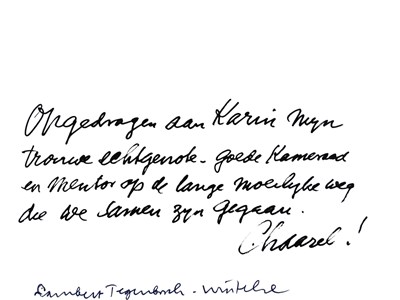 Opgedragen aan Karin mijn
trouwe echtgenote - goede kameraad
en mentor op de lange moeilijke weg
die we samen zijn gegaan.
Lambert Tegenbosch -